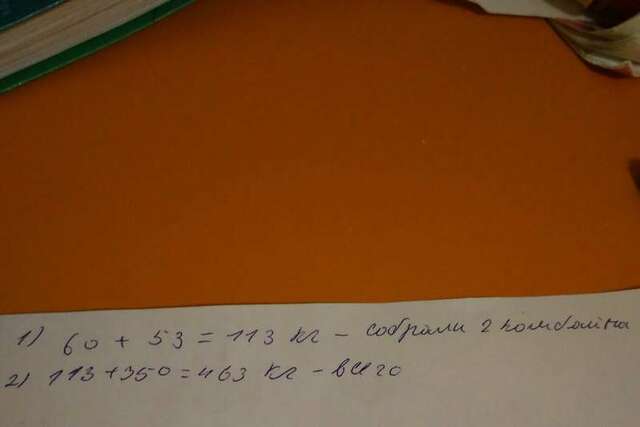 1) 60 + 53 = 113 кг – собрали 2 комбайна
2) 113 + 350 = 463 кг – всего